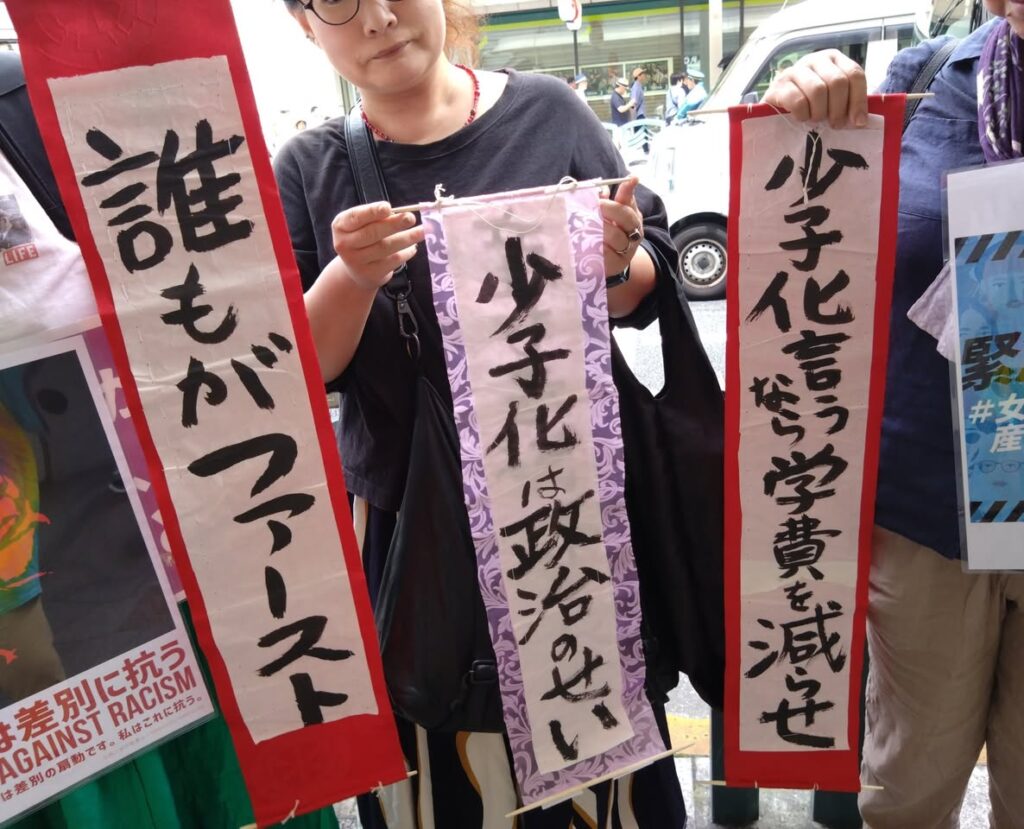 誰もがファースト
少子化は政治のせい
少子化言うなら学費を減らせ
LIFE
は差別に抗う
AGAINST RACISM
は差別の扇動です。私はこれに抗う。
緊
#女
産